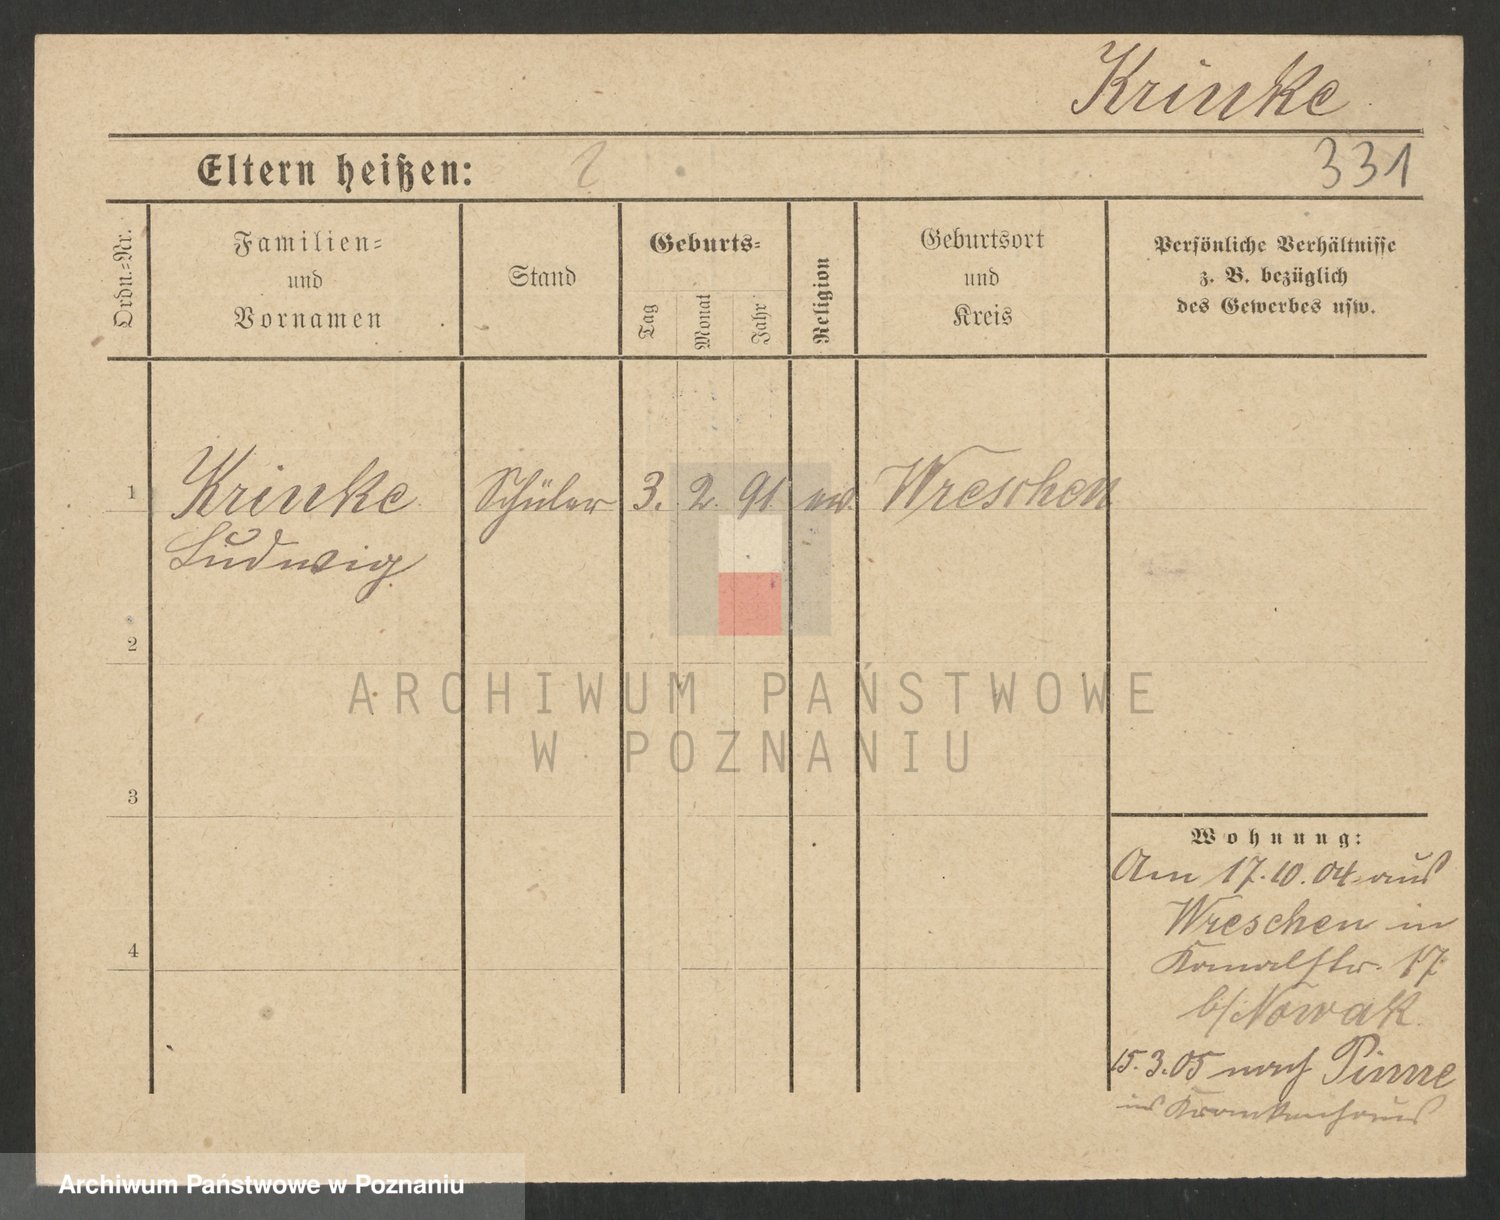 Krinke
Eltern heißen: ?
331
Ordn.-Nr.
Familien-
und
Vornamen
Stand
Geburts-
Tag
Monat
Jahr
Religion
Geburtsort
und
Kreis
Persönliche Verhältnisse
z. B. bezüglich
des Gewerbes usw.
1 Krinke Schüler 3. 2. 91 ev. Wreschen
Ludwig
2
ARCHIWUM PAŃSTWOWE
W POZNANIU
3
Wohnung:
Am 17.10.04 aus
Wreschen in
Kanalstr. 17
b/ Nowak
4
15.3.05 nach Pinne
ins Krankenhaus
Archiwum Państwowe w Poznaniu